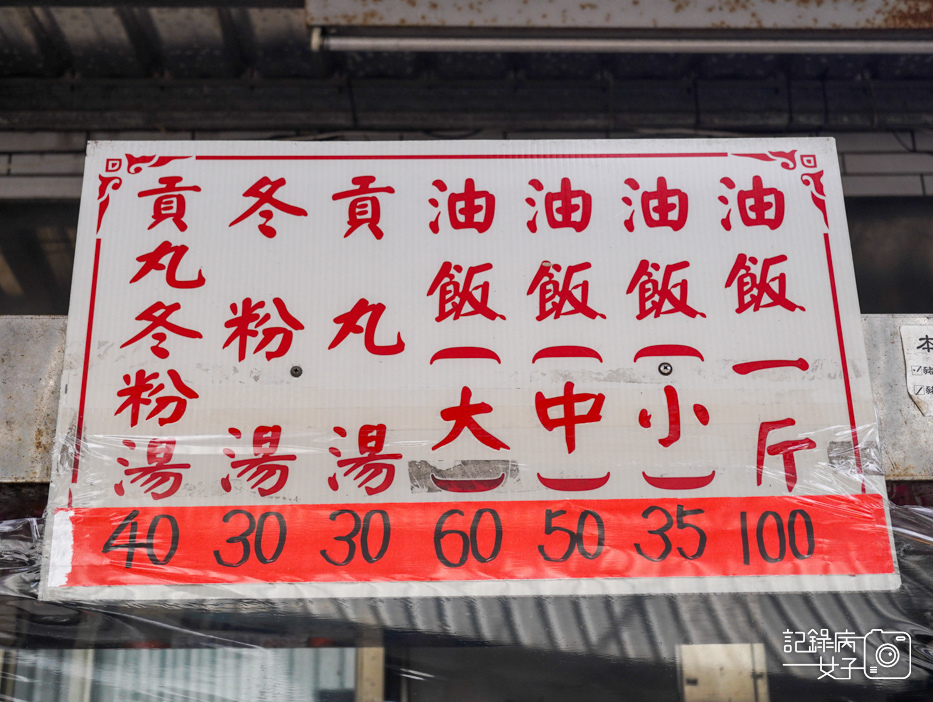 油飯一斤 100
油飯(小) 35
油飯(中) 50
油飯(大) 60
貢丸湯 30
冬粉湯 30
貢丸冬粉湯 40
本
記錄病
女子